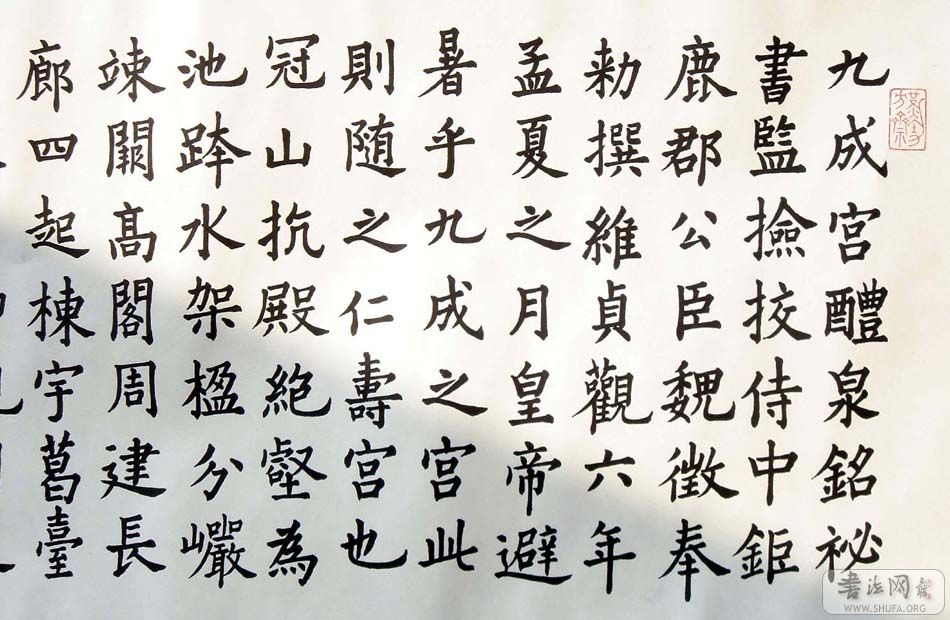 九成宮醴泉銘祕
書監撿挍侍中鉅
鹿郡公臣魏徵奉
勑撰維貞觀六年
孟夏之月皇帝避
暑乎九成之宮此
則随之仁壽宮也
冠山抗殿絶壑為
池跨水架楹分巖
竦闕髙閣周建長
廊四起棟宇葛臺
書法网
WWW.SHUFA.ORG